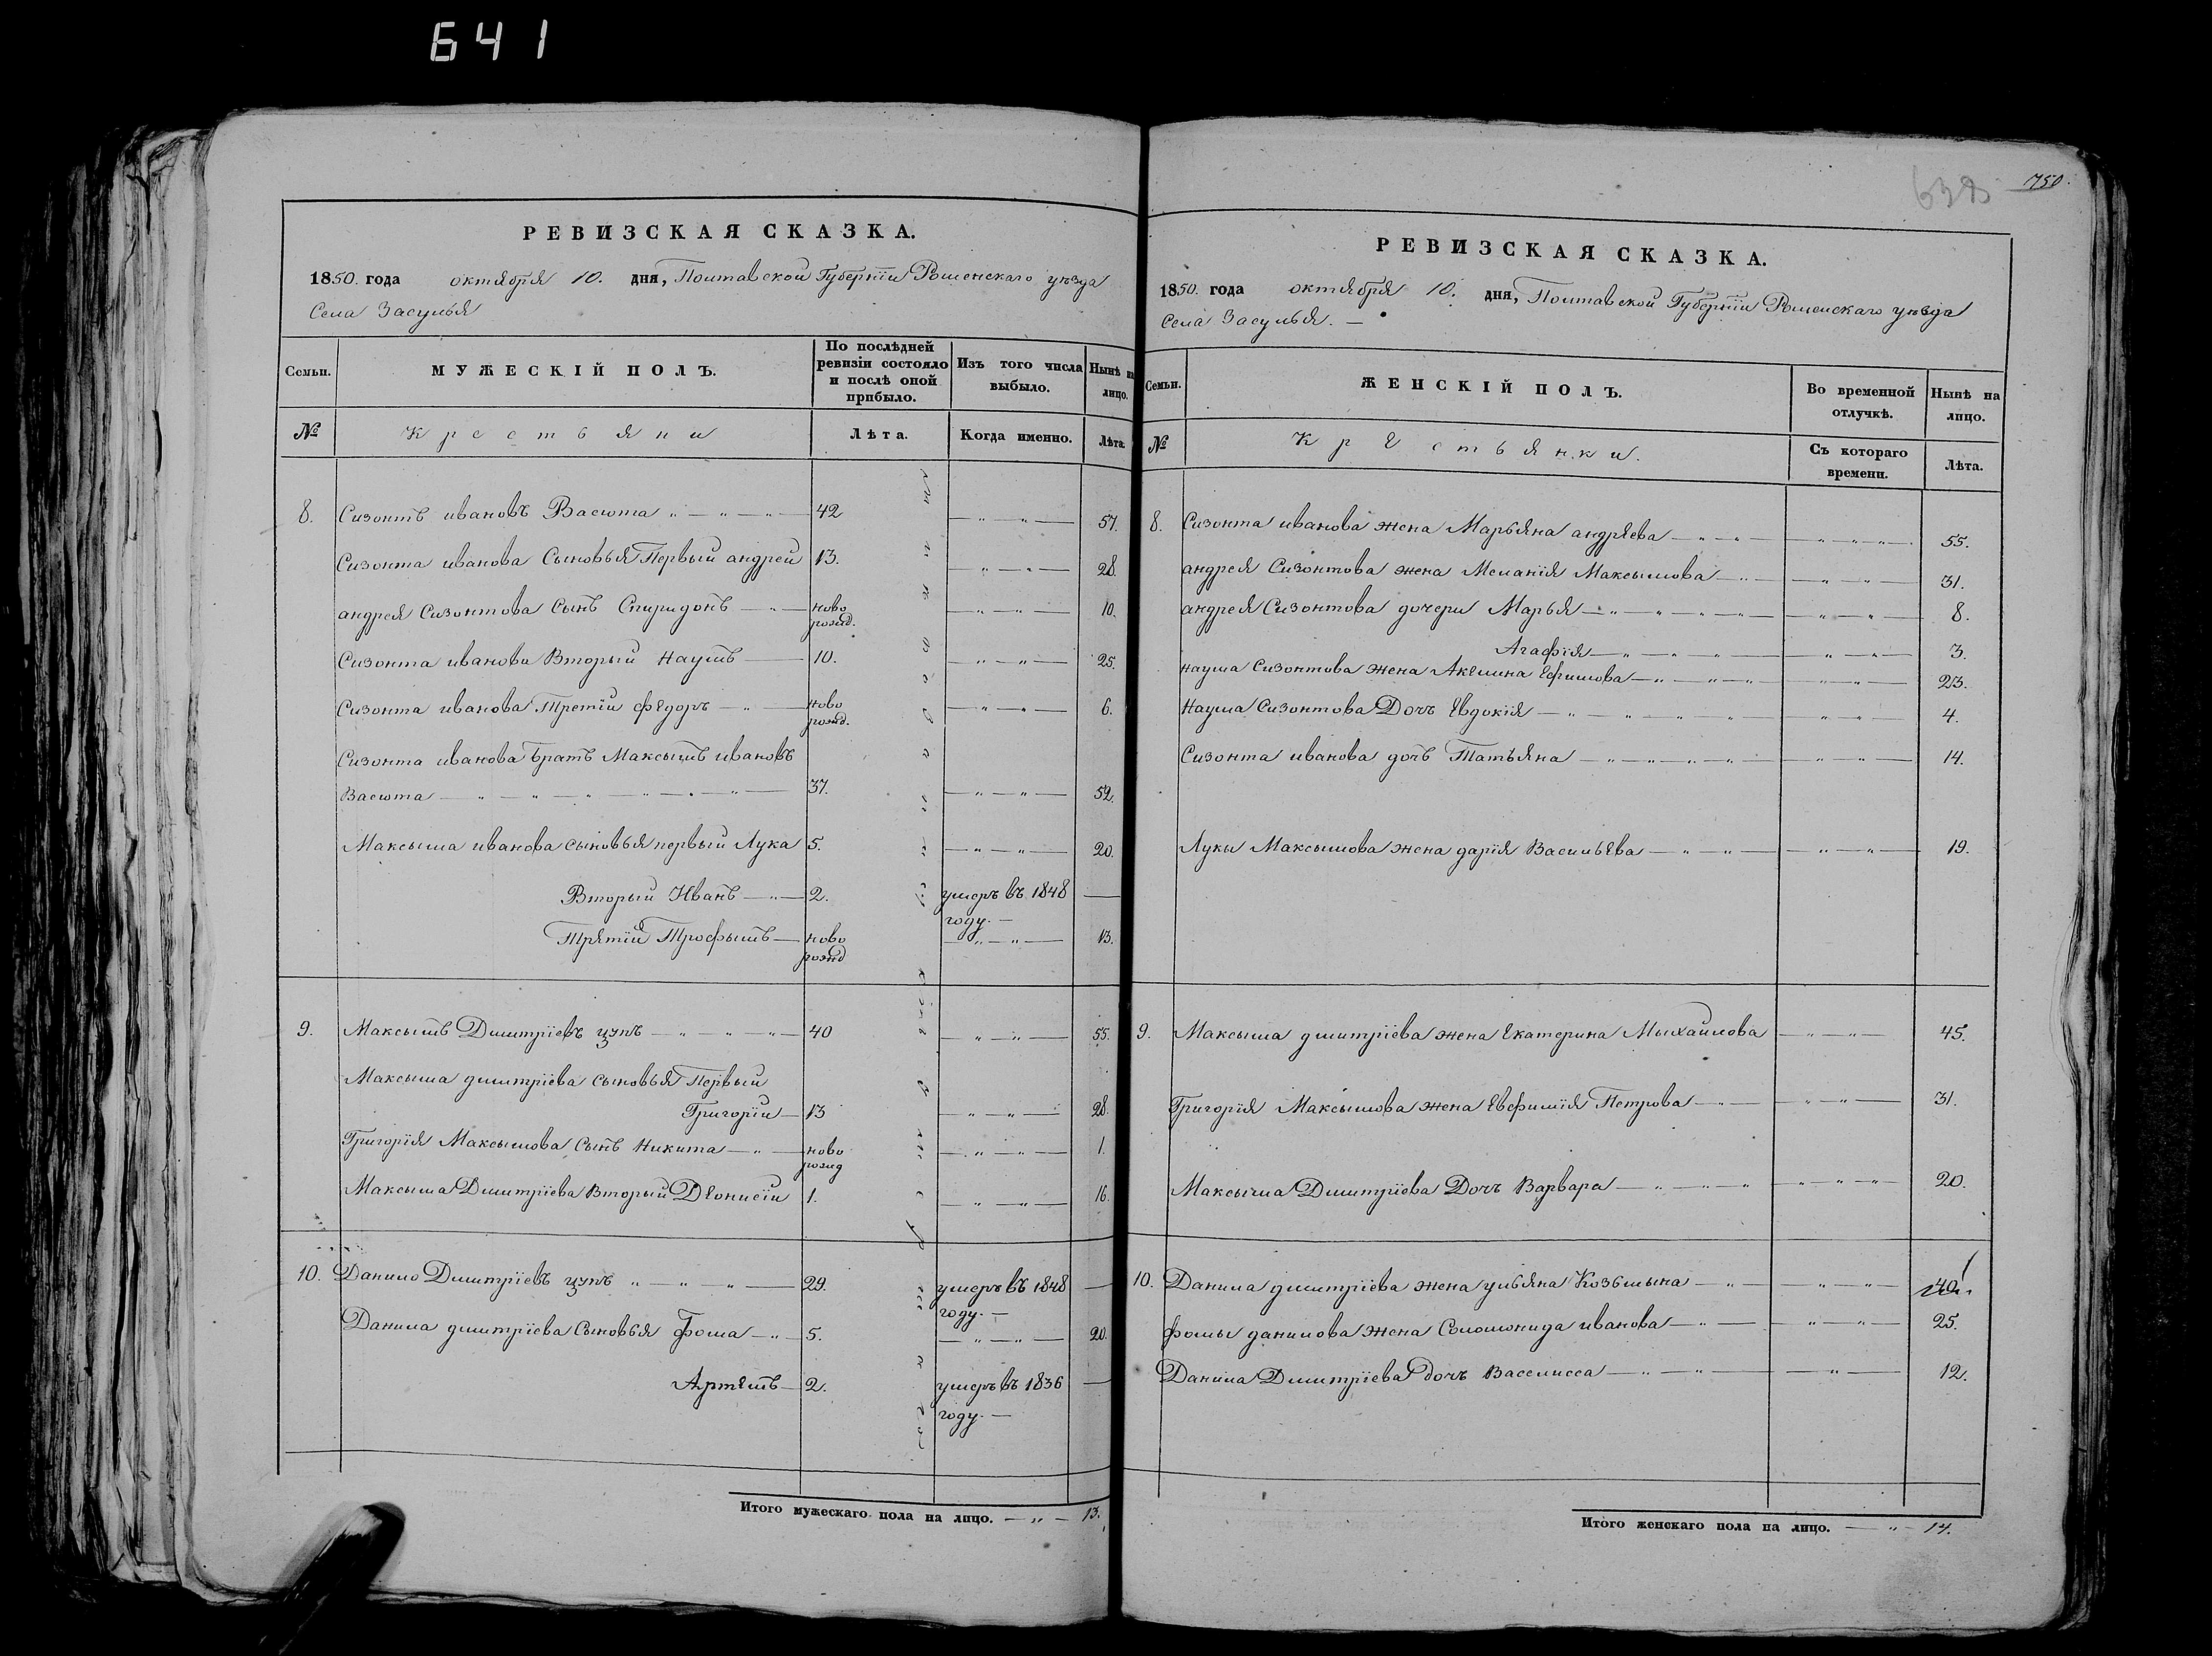 641
638
750.
РЕВИЗСКАЯ СКАЗКА.
1850. года октября 10. дня, Полтавской Губернїи Роменскаго уѣзда
Села Засулья
Семьи. МУЖЕСКІЙ ПОЛЪ. По послѣдней ревизіи состояло и послѣ оной прибыло. Изъ того числа выбыло. Нынѣ на лицо.
№ Крестьяни Лѣта. Когда именно. Лѣта.
8. Сизонтъ ивановъ Васюта 42 57.
Сизонта иванова Сыновья Первый андрей 13. 28.
андрея Сизонтова Сынъ Спиридонъ ново рожд. 10.
Сизонта иванова Вторый Наумъ 10. 25.
Сизонта иванова Третїй федоръ ново рожд. 6.
Сизонта иванова Братъ Максымъ ивановъ
Васюта 37. 52.
Максыма иванова сыновья первый Лука 5. 20.
Вторый Иванъ 2. умеръ въ 1848 году.
Третїй Трофымъ ново рожд 13.
9. Максымъ Дмитрїевъ цупъ 40 55.
Максыма дмитрїева сыновья Первый
Григорїй 13 28.
Григорїя Максымова Сынъ Никита ново рожд 1.
Максыма Дмитрїева Вторый Деонисїй 1. 16.
10. Данило Дмитрїевъ цупъ 29. умеръ въ 1848 году.
Данила дмитрїева Сыновья фома 5. 20.
Артемъ 2. умеръ въ 1836 году.
Итого мужескаго пола на лицо. 13.
РЕВИЗСКАЯ СКАЗКА.
1850. года октября 10. дня, Полтавской Губернїи Роменскаго уѣзда
Села Засулья.
Семьи. ЖЕНСКІЙ ПОЛЪ. Во временной отлучкѣ. Нынѣ на лицо.
№ Крестьянки. Съ котораго времени. Лѣта.
8. Сизонта иванова жена Марьяна андреева 55.
андрея Сизонтова жена Меланїя Максымова 31.
андрея Сизонтова дочери Марья 8.
Агафїя 3.
наума Сизонтова жена Акелина Ефимова 23.
Наума Сизонтова Дочъ Евдокїя 4.
Сизонта иванова дочъ Татьяна 14.
Лукы Максымова жена дарїя Васильева 19.
9. Максыма дмитрїева жена Екатерина Мыхайлова 45.
Григорїя Максымова жена Евфимїя Петрова 31.
Максыма Дмитрїева Дочъ Варвара 20.
10. Данила дмитрїева жена ульяна Козьмына 40.
фомы данилова жена Соломонида иванова 25.
Данила Дмитрїева дочъ Васелисса 12.
Итого женскаго пола на лицо. 14.